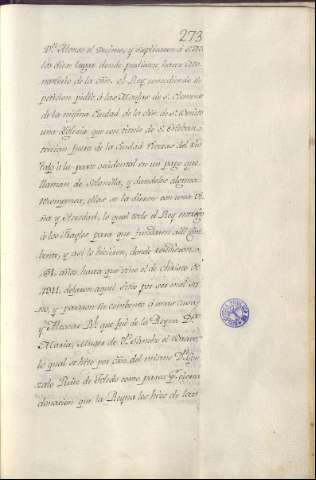 273
Dn. Alonso el Onceno, y suplicaron á S. A.
los diese lugar donde pudiesen hacer Mo-
nasterio de la orden. El Rey concediendo su
peticion pidio á las Monjas de S. Clemente
de la misma Ciudad de la orden de S. Benito
una Iglesia que con titulo de S. Esteban
tenian fuera de la Ciudad cerca del rio
Tajo á la parte occidental en un pago que
llaman de Solanilla, y dandoles alguna
recompensa, ellas se la dieron con una Vi-
ña y Heredad, lo qual todo el Rey entregó
á los frayles para que fundasen alli Con-
bento, y asi lo hicieron, donde residieron
años, hasta que vino el de christo de
1311, dejaron aquel sitio por ser mal sa-
no, y pasaron su Conbento á unas casas,
y Alcazar Rl. que fué de la Reyna Dña
Maria, Muger de Dn. Sancho el Bravo,
lo qual se hizo por orden del mismo Dn. Gon-
zalo Ruiz de Toledo como parece pr. cierta
donacion que la Reyna les hizo de las